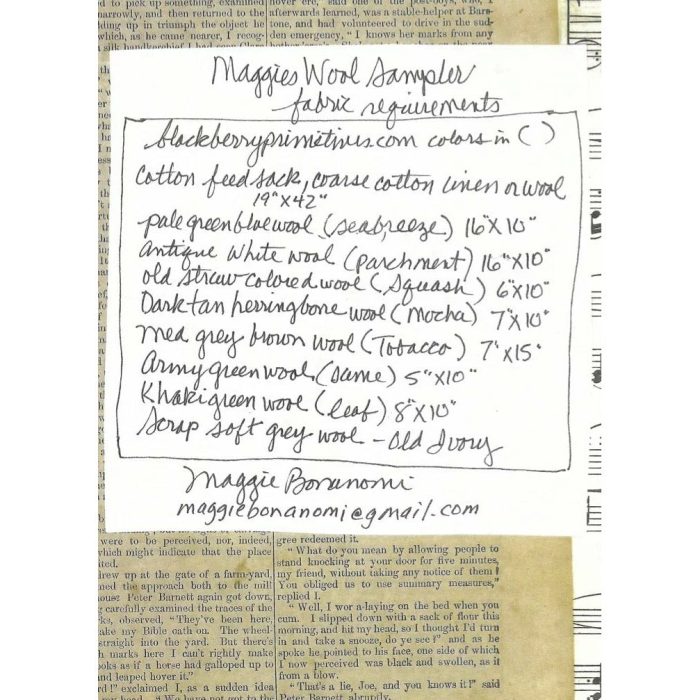 d to pick up something, examined
narrowly, and then returned to the
lding up in triumph the object he
which, as he came nearer, I recog-
afterwards learned, was a stable-helper at Barn-
tone, and had volunteered to drive in the sud-
den emergency, "I knew her marks from any
Maggies Wool Sampler
fabric requirements
blackberryprimitives.com colors in ( )
Cotton feed sack, coarse cotton linen or wool
19"X42"
pale green blue wool (seabreeze) 16"X10"
Antique White wool (parchment) 16"X10"
old straw colored wool (Squash) 6"X10"
Dark tan herringbone wool (Mocha) 7"X10"
med grey brown wool (Tobacco) 7"X15"
Army green wool (same) 5"X10"
Khaki green wool (leaf) 8"X10"
Scrap soft grey wool - Old Ivory
Maggie Bonanomi
maggiebonanomi@gmail.com
were to be perceived, nor, indeed,
which might indicate that the place
ited.
drew up at the gate of a farm-yard,
ned the approach both to the mill
ouse Peter Barnett again got down,
g carefully examined the traces of the
ks, observed, "They've been here,
ake my Bible oath on. The wheel-
straight into the yard. But there's
h marks here I can't rightly make
ooks as if a horse had galloped up to
and leaped hover it."
rd!" exclaimed I, as a sudden idea
gree redeemed it.
"What do you mean by allowing people to
stand knocking at your door for five minutes,
my friend, without taking any notice of them?
You obliged us to use summary measures,"
replied I.
"Well, I wor a-laying on the bed when you
cum. I slipped down with a sack of flour this
morning, and hit my head, so I thought I'd turn
in and take a snooze, do ye see?" and as he
spoke he pointed to his face, one side of which
I now perceived was black and swollen, as it
from a blow.
"That's a lie, Joe, and you knows it!" said
Peter Barnett, abruptly.